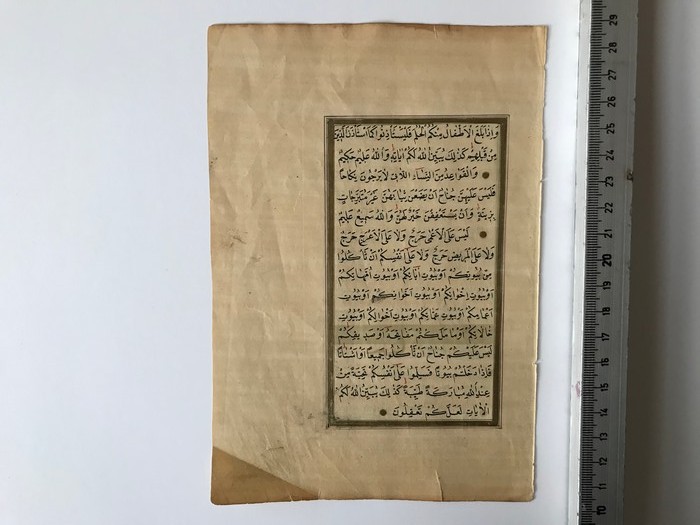 وَاِذَا بَلَغَ الْاَطْفَالُ مِنْكُمُ الْحُلُمَ فَلْيَسْتَأْذِنُوا كَمَا اسْتَأْذَنَ الَّذِينَ
مِنْ قَبْلِهِمْ كَذٰلِكَ يُبَيِّنُ اللّٰهُ لَكُمْ اٰيَاتِهِ وَاللّٰهُ عَلِيمٌ حَكِيمٌ
وَالْقَوَاعِدُ مِنَ النِّسَاءِ اللَّاتِي لَا يَرْجُونَ نِكَاحًا
فَلَيْسَ عَلَيْهِنَّ جُنَاحٌ اَنْ يَضَعْنَ ثِيَابَهُنَّ غَيْرَ مُتَبَرِّجَاتٍ
بِزِينَةٍ وَاَنْ يَسْتَعْفِفْنَ خَيْرٌ لَهُنَّ وَاللّٰهُ سَمِيعٌ عَلِيمٌ
لَيْسَ عَلَى الْاَعْمٰى حَرَجٌ وَلَا عَلَى الْاَعْرَجِ حَرَجٌ
وَلَا عَلَى الْمَرِيضِ حَرَجٌ وَلَا عَلٰى اَنْفُسِكُمْ اَنْ تَأْكُلُوا
مِنْ بُيُوتِكُمْ اَوْ بُيُوتِ اٰبَائِكُمْ اَوْ بُيُوتِ اُمَّهَاتِكُمْ
اَوْ بُيُوتِ اِخْوَانِكُمْ اَوْ بُيُوتِ اَخَوَاتِكُمْ اَوْ بُيُوتِ
اَعْمَامِكُمْ اَوْ بُيُوتِ عَمَّاتِكُمْ اَوْ بُيُوتِ اَخْوَالِكُمْ اَوْ بُيُوتِ
خَالَاتِكُمْ اَوْ مَا مَلَكْتُمْ مَفَاتِحَهُ اَوْ صَدِيقِكُمْ
لَيْسَ عَلَيْكُمْ جُنَاحٌ اَنْ تَأْكُلُوا جَمِيعًا اَوْ اَشْتَاتًا
فَاِذَا دَخَلْتُمْ بُيُوتًا فَسَلِّمُوا عَلٰى اَنْفُسِكُمْ تَحِيَّةً مِنْ
عِنْدِ اللّٰهِ مُبَارَكَةً طَيِّبَةً كَذٰلِكَ يُبَيِّنُ اللّٰهُ لَكُمُ
الْاٰيَاتِ لَعَلَّكُمْ تَعْقِلُونَ
29
28
27
26
25
24
23
22
21
20
19
18
17
16
15
14
13
12
11
10